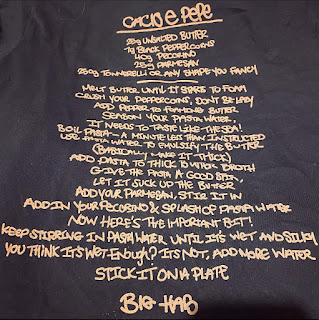 CACIO E PEPE
25g UNSALTED BUTTER
7g BLACK PEPPERCORNS
40g PECORINO
25g PARMESAN
250g TONNERELLI OR ANY SHAPE YOU FANCY
MELT BUTTER UNTIL IT STARTS TO FOAM
CRUSH YOUR PEPPERCORNS, DON'T BE LAZY
ADD PEPPER TO FOAMING BUTTER
SEASON YOUR PASTA WATER,
IT NEEDS TO TASTE LIKE THE SEA!
BOIL PASTA - A MINUTE LESS THAN INSTRUCTED
USE PASTA WATER TO EMULSIFY THE BUTTER
(BASICALLY MAKE IT THICK)
ADD PASTA TO THICK BUTTERY BROTH
GIVE THE PASTA A GOOD SPIN
LET IT SUCK UP THE BUTTER
ADD YOUR PARMESAN. STIR IT IN
ADD IN YOUR PECORINO & SPLASH OF PASTA WATER
NOW HERE'S THE IMPORTANT BIT!
KEEP STIRRING IN PASTA WATER UNTIL IT'S WET AND SILKY
YOU THINK IT'S WET ENOUGH? IT'S NOT, ADD MORE WATER
STICK IT ON A PLATE
BIG HAB